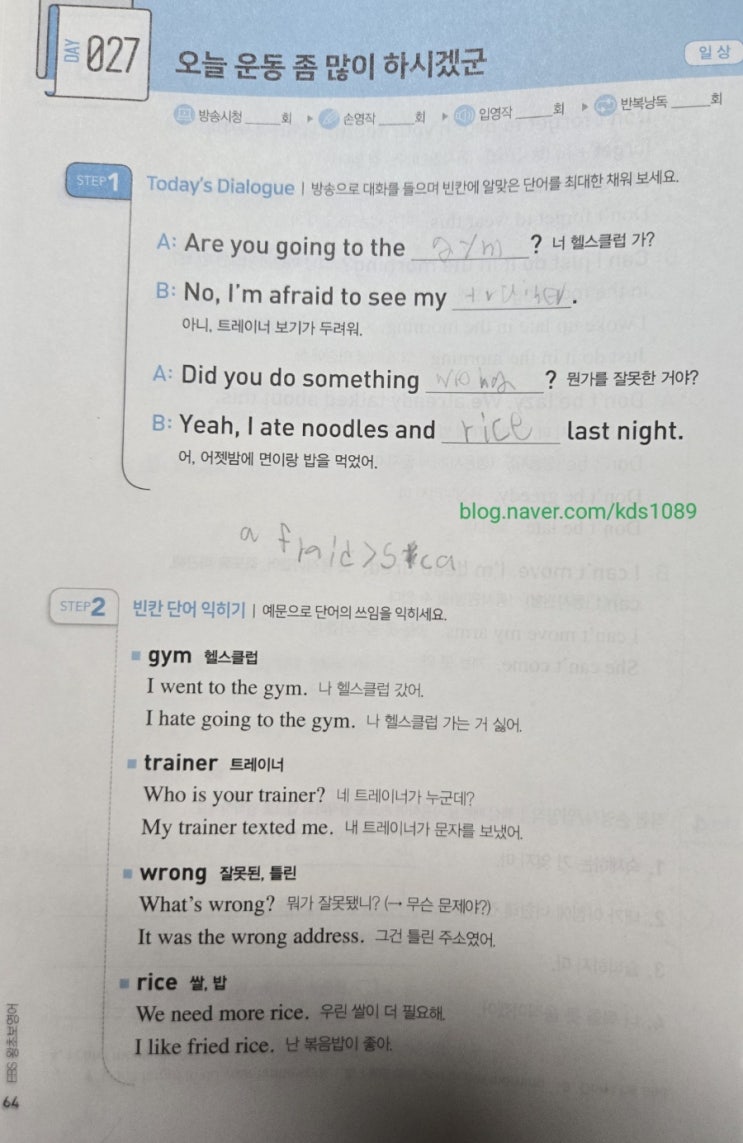 DAY 027
오늘 운동 좀 많이 하시겠군
일상
방송시청 ______회 ▶ 손영작 ______회 ▶ 입영작 ______회 ▶ 반복낭독 ______회
STEP 1 Today's Dialogue | 방송으로 대화를 들으며 빈칸에 알맞은 단어를 최대한 채워 보세요.
A: Are you going to the gym? 너 헬스클럽 가?
B: No, I'm afraid to see my trainer.
아니, 트레이너 보기가 두려워.
A: Did you do something wrong? 뭔가를 잘못한 거야?
B: Yeah, I ate noodles and rice last night.
어, 어젯밤에 면이랑 밥을 먹었어.
blog.naver.com/kds1089
afraid >
STEP 2 빈칸 단어 익히기 | 예문으로 단어의 쓰임을 익히세요.
gym 헬스클럽
I went to the gym. 나 헬스클럽 갔어.
I hate going to the gym. 나 헬스클럽 가는 거 싫어.
trainer 트레이너
Who is your trainer? 네 트레이너가 누군데?
My trainer texted me. 내 트레이너가 문자를 보냈어.
wrong 잘못된, 틀린
What's wrong? 뭐가 잘못됐니? (→ 무슨 문제야?)
It was the wrong address. 그건 틀린 주소였어.
rice 쌀, 밥
We need more rice. 우린 쌀이 더 필요해.
I like fried rice. 난 볶음밥이 좋아.
EBS 왕초보영어
64